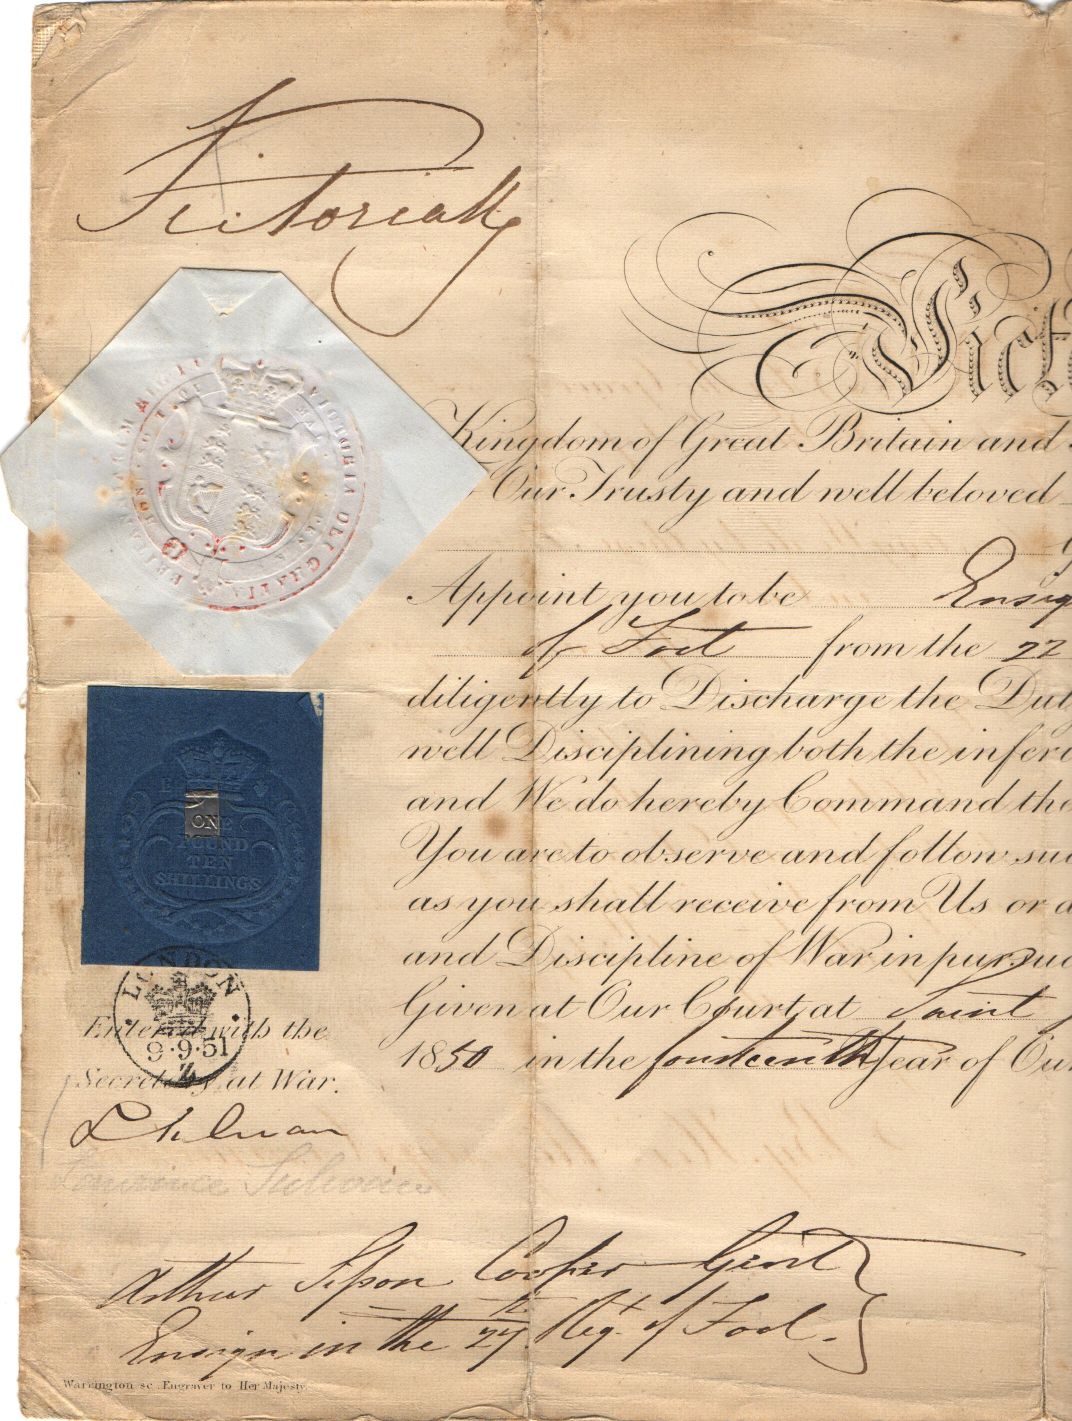 Victoria R
Vict
Kingdom of Great Britain and
Our Trusty and well beloved
Appoint you to be Ensig
of Foot from the 22
diligently to Discharge the Dut
well Disciplining both the inferi
and We do hereby Command the
You are to observe and follow suc
as you shall receive from Us or a
and Discipline of War in pursu
Given at Our Court at Saint J
1850 in the fourteenth Year of Our
VICTORIA DEI GRATIA
ONE
POUND
TEN
SHILLINGS
LONDON
9·9·51
Z
Entered with the
Secretary at War.
Arthur Cooper Gent
Ensign in the 27th Regt. of Foot.
Warrington sc. Engraver to Her Majesty.